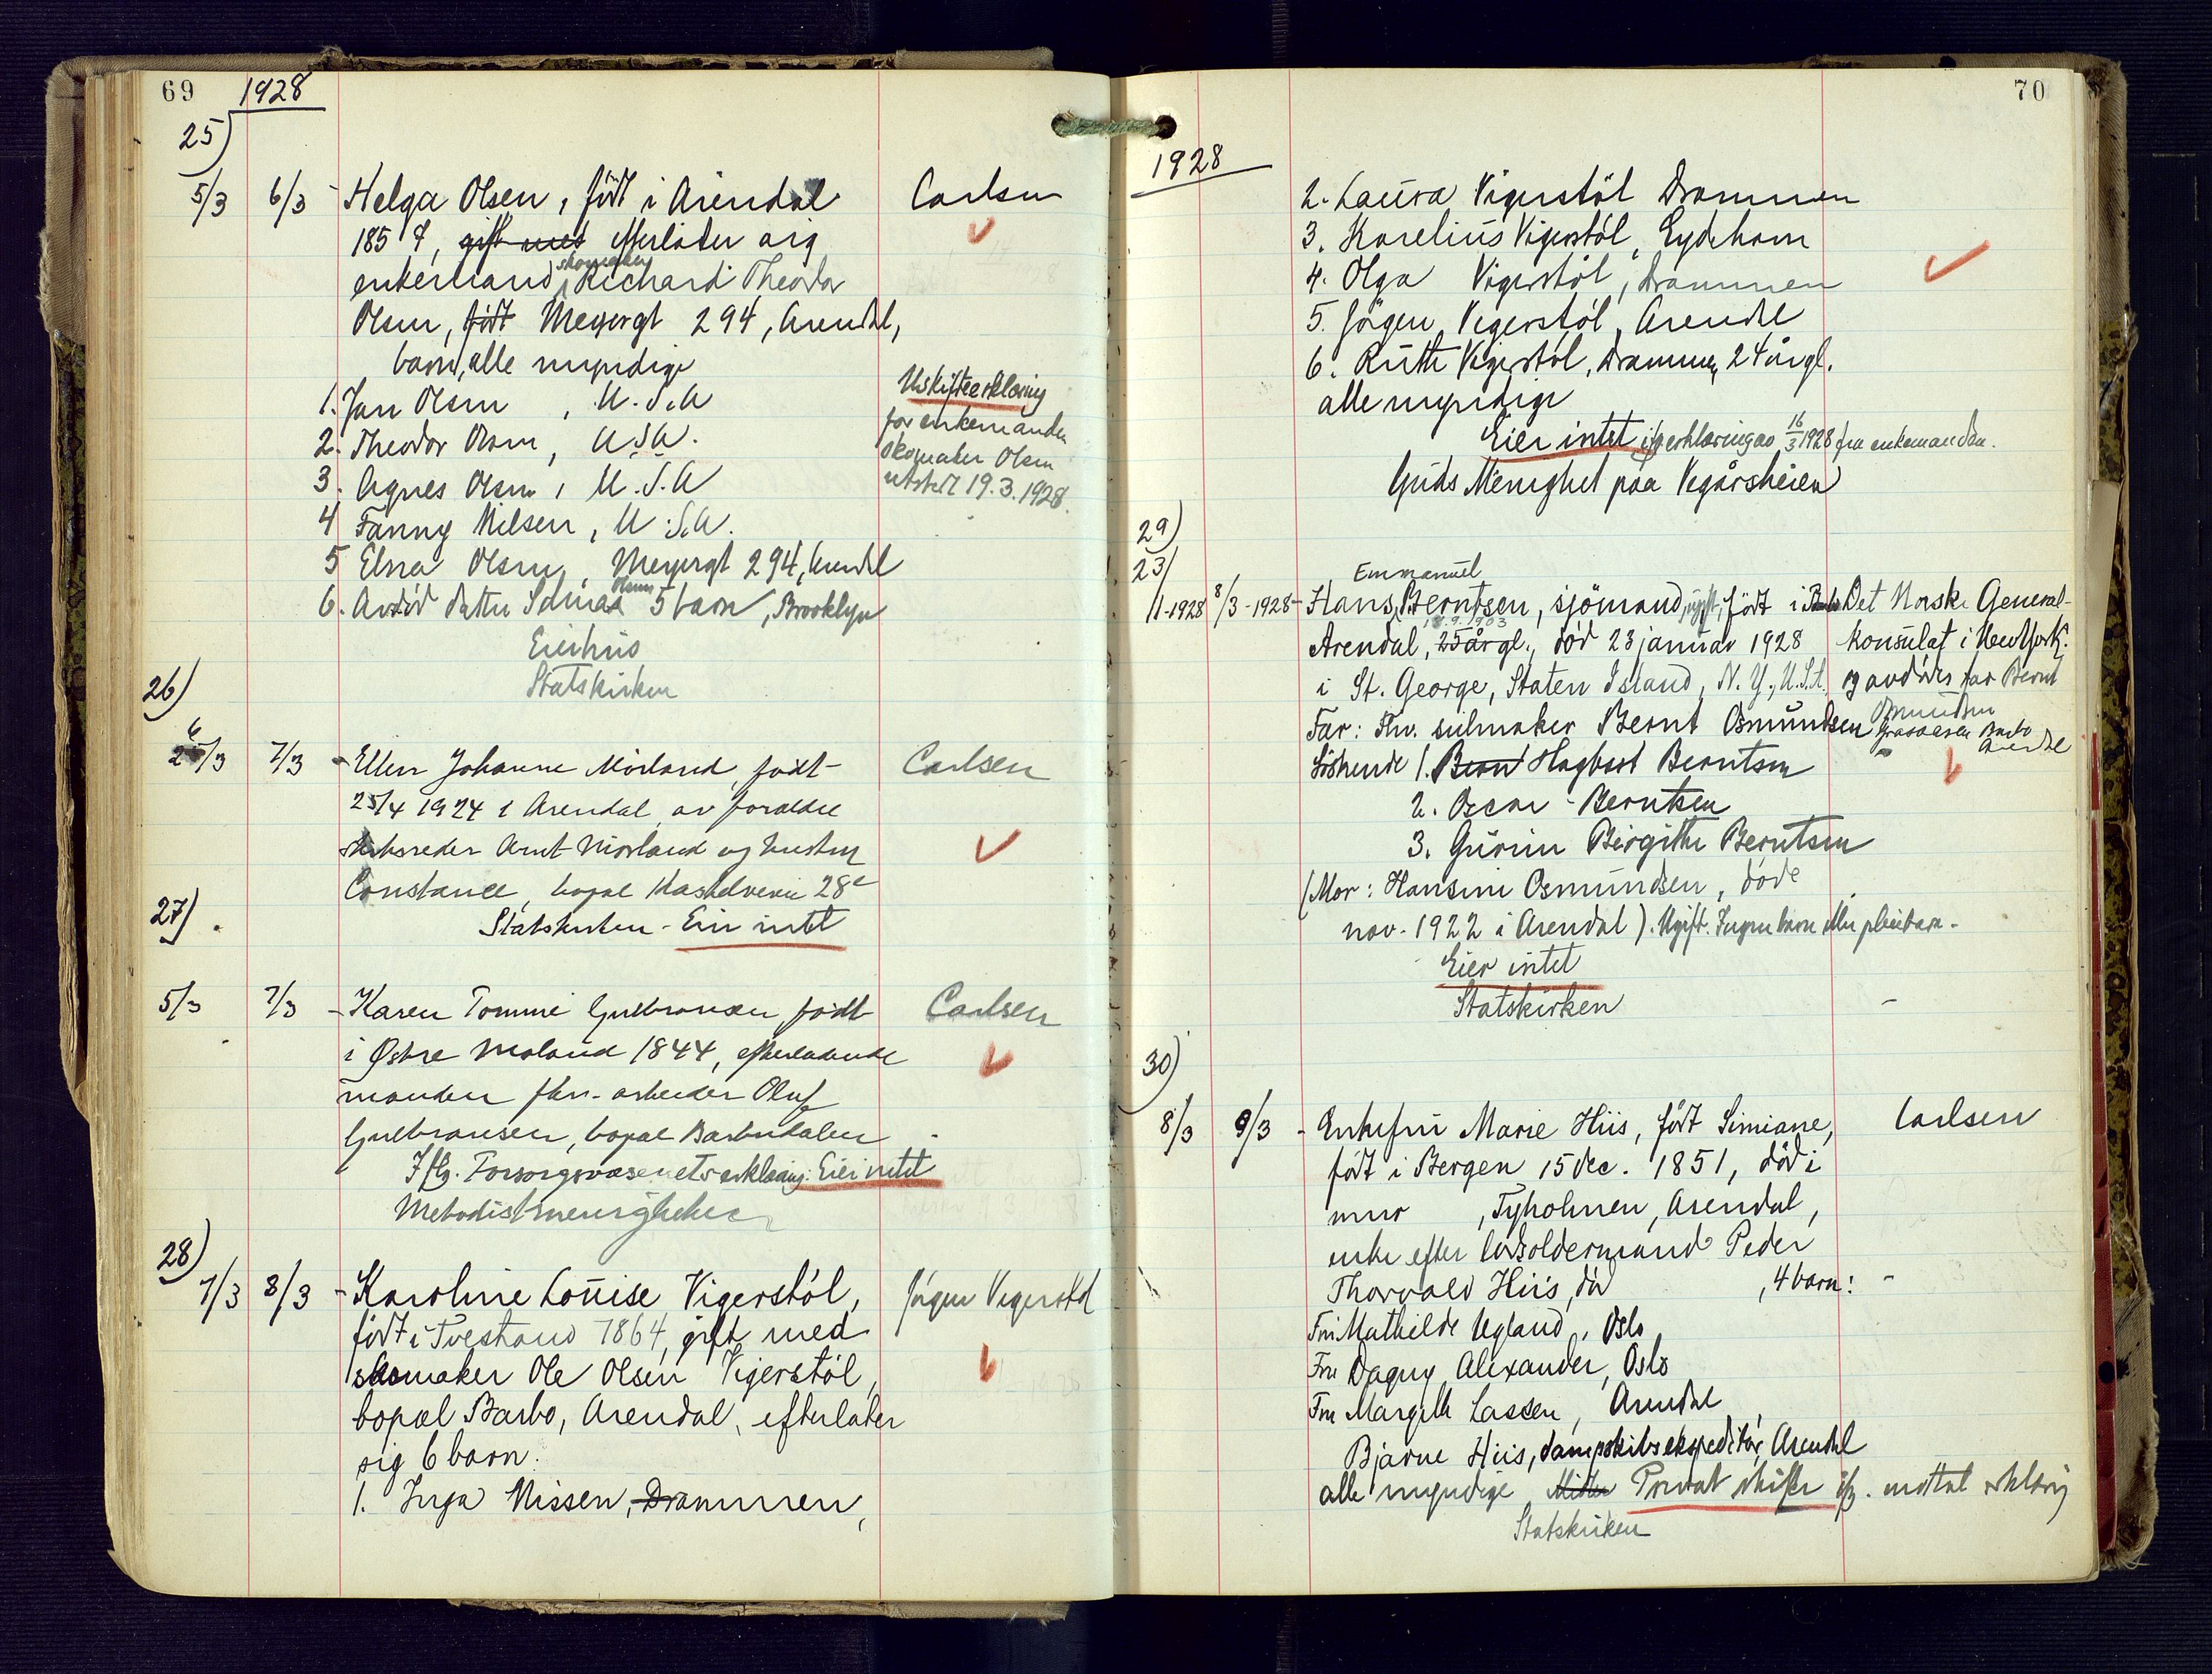 69
1928
25)
5/3 6/3 - Helga Olsen, født i Arendal Carlsen
1859, gift med efterlater sig
enkemand, skomaker Richard Theodor
Olsen, født Meyergt 294, Arendal,
barn, alle myndige
1. Jan Olsen, U.S.A
2. Theodor Olsen, U.S.A.
3. Agnes Olsen, U.S.A
4 Fanny Nilsen, U.S.A.
5 Elna Olsen, Meyergt 294, Arendal
6. Avdød datter Selma Olsens 5 barn, Brooklyn
Uskifteerklæring
for enkemanden
skomaker Olsen
utstedt 19.3.1928.
Eierhus
Statskirken
26)
26/3 7/3 - Ellen Johanne Mörland, født Carlsen
25/4 1924 i Arendal av foreldre
skibsreder Arnt Mörland og hustru
Constance, bopæl Kastelveien 28c
Statskirken - Eier intet
27)
5/3 7/3 - Karen Tomine Gulbransen født Carlsen
i Østre Moland 1844, efterladende
manden fhv. arbeider Oluf
Gulbransen, bopæl Barbudalen
Iflg. Forsorgsvæsenets erklæring: Eier intet
Metodistmenigheten
28)
7/3 8/3 - Karoline Louise Vigerstöl, Jörgen Vegerstöl
född i Tvedestrand 1864, gift med
skomaker Ole Olsen Vigerstöl,
bopæl Barbo, Arendal, efterlater
sig 6 barn:
1. Inga Nissen, Drammen,
70
1928
2. Laura Vigerstöl Drammen
3. Karelius Vigerstöl, Eydehavn
4. Olga Vigerstöl, Drammen
5. Jörgen Vegerstöl, Arendal
6. Ruth Vigerstöl, Drammen, 24 år gl.
alle myndige
Eier intet iflg erklæring av 16/3 1928 fra enkemanden.
Guds Menighet paa Vegårsheien
29)
23/1-1928 8/3-1928 - Hans Emmanuel Berntsen, sjömand, ugift, født i Barbo
Arendal, 25 år gl., 18.9.1903 død 23 januar 1928
i St. George, Staten Island, N.Y., U.S.A.
Det Norske General-
konsulat i New York.
og avdödes far Bernt
Osmundsen
Barbo
Arendal
Far: Fhv. seilmaker Bernt Osmundsen
Söskende 1. Bern Hagbart Berntsen
2. Oscar Berntsen
3. Gurine Birgithe Berntsen
(Mor: Hansine Osmundsen, døde
nov. 1922 i Arendal). Ugift. Ingen barn eller pleiebarn.
Eier intet
Statskirken
30)
8/3 9/3 - Enkefru Marie Hiis, født Simiane, Carlsen
født i Bergen 15 dec. 1851, død i
, Tyholmen, Arendal,
enke efter losoldermand Peder
Thorvald Hiis, død , 4 barn:
Fru Mathilde Ugland, Oslo
Fru Dagny Alexander, Oslo
Fru Margith Lassen, Arendal
Bjarne Hiis, dampskibsekspeditør, Arendal
alle myndige Privat skifte iflg. mottat erklæring
Statskirken